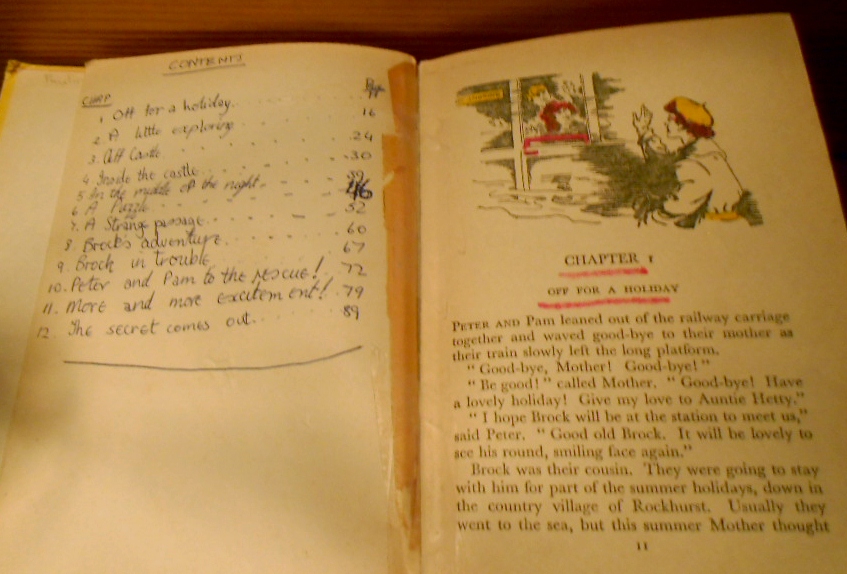 CONTENTS
CHAP
1 Off for a holiday.
2 A little exploring 16
3. Cliff Castle 24
4. Inside the castle 30
5 In the middle of the night 39
6 A Puzzle 46
7. A Strange passage 52
8 Brock's adventure 60
9. Brock in trouble 67
10. Peter and Pam to the rescue! 72
11. More and more excitement! 79
12. The secret comes out 89
CHAPTER 1
OFF FOR A HOLIDAY
PETER AND Pam leaned out of the railway carriage
together and waved good-bye to their mother as
their train slowly left the long platform.
"Good-bye, Mother! Good-bye!"
"Be good!" called Mother. "Good-bye! Have
a lovely holiday! Give my love to Auntie Hetty."
"I hope Brock will be at the station to meet us,"
said Peter. "Good old Brock. It will be lovely to
see his round, smiling face again."
Brock was their cousin. They were going to stay
with him for part of the summer holidays, down in
the country village of Rockhurst. Usually they
went to the sea, but this summer Mother thought
11